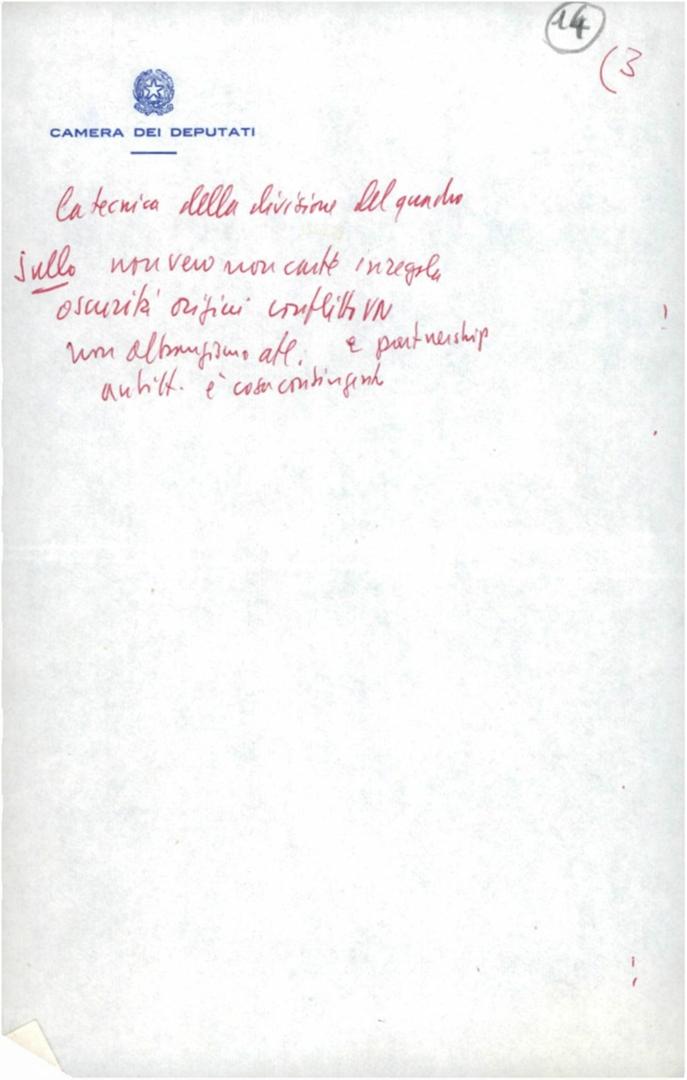 14
(3
CAMERA DEI DEPUTATI
la tecnica della divisione del quadro
Sullo non vero non carte in regola
oscurità origini conflitto VN
non oltranzismo atl. e partnership
è cosa contingente